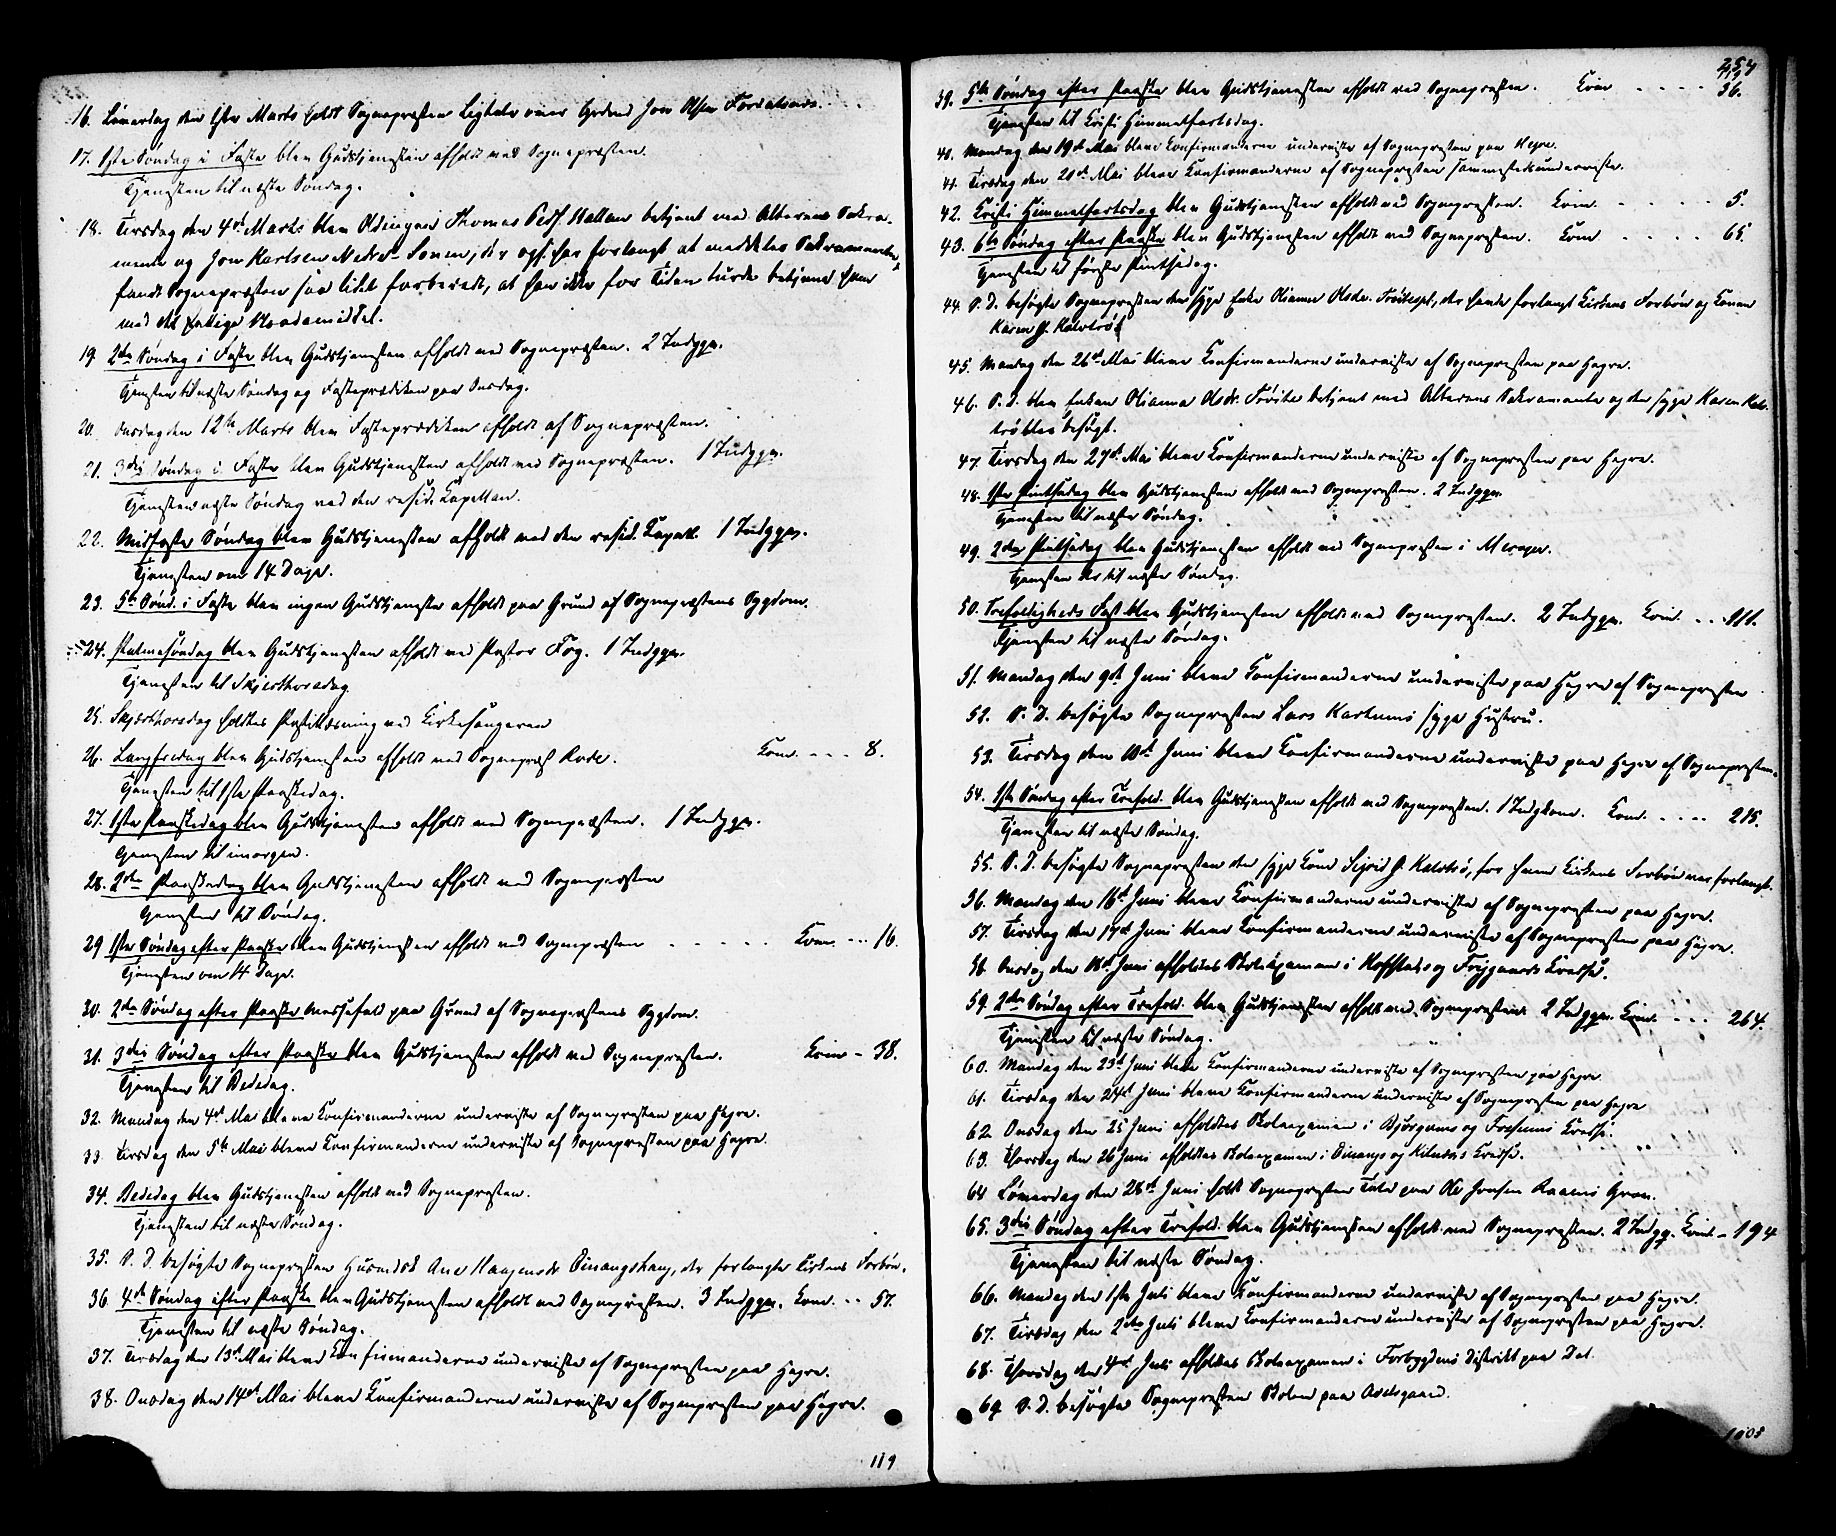 16. Løverdag den 1ste Marts holdt Sognepræsten Ligtale over Jon Olsen
17. 1ste Søndag i Faste blev Gudstjenesten afholdt ved Sognepræsten.
Tjenesten til næste Søndag.
18. Tirsdag den 4de Marts blev Thomas Peds. betjent med Alterens Sakra-
mente og Jon Karlsen Nedre- der ogs. har forlangt at meddeles Sakramentet,
fandt Sognepræsten saa lidet forberedt, at han ikke for Tiden turde betjene ham
med det hellige Naademiddel.
19. 2den Søndag i Faste blev Gudstjenesten afholdt ved Sognepræsten. 2 Indgge.
Tjenesten til næste Søndag og Fasteprædiken paa Onsdag.
20. Onsdag den 12te Marts blev Fasteprædiken afholdt af Sognepræsten.
21. 3die Søndag i Faste blev Gudstjenesten afholdt ved Sognepræsten. 1 Indggn.
Tjenesten næste Søndag ved den resid. Capellan.
22. Midfaste Søndag blev Gudstjenesten afholdt ved den resid. Capell. 1 Indggn.
Tjenesten om 14 Dage.
23. 5te Sønd. i Faste blev ingen Gudstjeneste afholdt paa Grund af Sognepræstens Sygdom.
24. Palmesøndag blev Gudstjenesten afholdt ved Pastor Fog. 1 Indggn.
Tjenesten til Skjærthorsdag
25. Skjærthorsdag holdtes Postillæsning ved Kirkesangeren
26. Langfredag blev Gudstjenesten afholdt ved Sognepræst Rode. Com. - - - 8.
Tjenesten til 1ste Paaskedag.
27. 1ste Paaskedag blev Gudstjenesten afholdt ved Sognepræsten. 1 Indggn.
Tjenesten til imorgen.
28. 2den Paaskedag blev Gudstjenesten afholdt ved Sognepræsten
Tjenesten til Søndag.
29 1ste Søndag efter Paaske blev Gudstjenesten afholdt ved Sognepræsten - - - - - Com. - - - 16.
Tjenesten om 14 Dage.
30. 2den Søndag efter Paaske Messefald paa Grund af Sognepræstens Sygdom.
31. 3die Søndag efter Paaske blev Gudstjenesten afholdt ved Sognepræsten. Com - 38.
Tjenesten til Bededag.
32. Mandag den 4de Mai bleve Confirmanderne underviste af Sognepræsten paa Hegre.
33. Tirsdag den 5te Mai bleve Confirmanderne underviste af Sognepræsten paa Hegre.
34. Bededag blev Gudstjenesten afholdt ved Sognepræsten.
Tjenesten til næste Søndag.
35. S. D. besøgte Sognepræsten Ane Haagensdr. der forlangte Kirkens Forbøn.
36. 4de Søndag efter Paaske blev Gudstjenesten afholdt ved Sognepræsten. 3 Indggn. Com. - - 57.
Tjenesten til næste Søndag.
37. Tirsdag den 13de Mai bleve Confirmanderne underviste af Sognepræsten paa Hegre.
38. Onsdag den 14de Mai bleve Confirmanderne underviste af Sognepræsten paa Hegre.
119
257
39. 5te Søndag efter Paaske blev Gudstjenesten afholdt ved Sognepræsten. Com - - - - 36.
Tjenesten til Kristi Himmelfartsdag.
40. Mandag den 19de Mai bleve Confirmanderne underviste af Sognepræsten paa Hegre.
41. Tirsdag den 20de Mai bleve Confirmanderne af Sognepræsten sammesteds underviste.
42. Kristi Himmelfartsdag blev Gudstjenesten afholdt ved Sognepræsten. Com. - - - - - 5.
43. 6te Søndag efter Paaske blev Gudstjenesten afholdt ved Sognepræsten. Com - - - - 65.
Tjenesten til første Pintsedag.
44. S. D. besøgte Sognepræsten den syge Enke Olianna Olsdr. der havde forlangt Kirkens Forbøn og Konen
Karen J.
45. Mandag den 26de Mai bleve Confirmanderne underviste af Sognepræsten paa Hegre.
46. S. D. blev Enken Olianna Olsdr. betjent med Alterens Sakramente og den syge Karen
besøgt.
47. Tirsdag den 27de Mai bleve Confirmanderne underviste af Sognepræsten paa Hegre.
48. 1ste Pintsedag blev Gudstjenesten afholdt ved Sognepræsten. 2 Indggn.
Tjenesten til næste Søndag.
49. 2den Pintsedag blev Gudstjenesten afholdt ved Sognepræsten i Meraker.
Tjenesten her til næste Søndag.
50. Trefoldigheds Fest blev Gudstjenesten afholdt ved Sognepræsten. 2 Indggn. Com. - - 111.
Tjenesten til næste Søndag.
51. Mandag den 9de Juni bleve Confirmanderne underviste paa Hegre af Sognepræsten
52. S. D. besøgte Sognepræsten Lars syge Hustru.
53. Tirsdag den 10de Juni bleve Confirmanderne underviste paa Hegre af Sognepræsten.
54. 1ste Søndag efter Trefold. blev Gudstjenesten afholdt ved Sognepræsten. 1 Com. - - - - 215.
Tjenesten til næste Søndag.
55. S. D. besøgte Sognepræsten den syge Kone Sigrid J. for hvem Kirkens Forbøn var forlangt.
56. Mandag den 16de Juni bleve Confirmanderne underviste af Sognepræsten paa Hegre.
57. Tirsdag den 17de Juni bleve Confirmanderne underviste af Sognepræsten paa Hegre.
58. Onsdag den 18de Juni afholdtes Skoleexamen i Hoffstads og Kredse.
59. 2den Søndag efter Trefold. blev Gudstjenesten afholdt ved Sognepræsten. 2 Indggn. Com. - - - 264.
Tjenesten til næste Søndag.
60. Mandag den 23de Juni bleve Confirmanderne underviste af Sognepræsten paa Hegre
61. Tirsdag den 24de Juni bleve Confirmanderne underviste af Sognepræsten paa Hegre
62. Onsdag den 25 Juni afholdtes Skoleexamen i Bjørgums og Kredse.
63. Thorsdag den 26 Juni afholdtes Skoleexamen i og Kredse.
64 Løverdag den 28de Juni holdt Sognepræsten Tale paa Ole Jonsen Grav.
65. 3die Søndag efter Trefold. blev Gudstjenesten afholdt ved Sognepræsten. 2 Indgg. Com - 194
Tjenesten til næste Søndag.
66. Mandag den 1ste Juli bleve Confirmanderne underviste af Sognepræsten paa Hegre.
67. Tirsdag den 2den Juli bleve Confirmanderne underviste af Sognepræsten paa Hegre.
68. Thorsdag den 4de Juli afholdtes Skoleexamen i Forbygdens Distrikt paa
69 S. D. besøgte Sognepræsten Skolen paa
1005